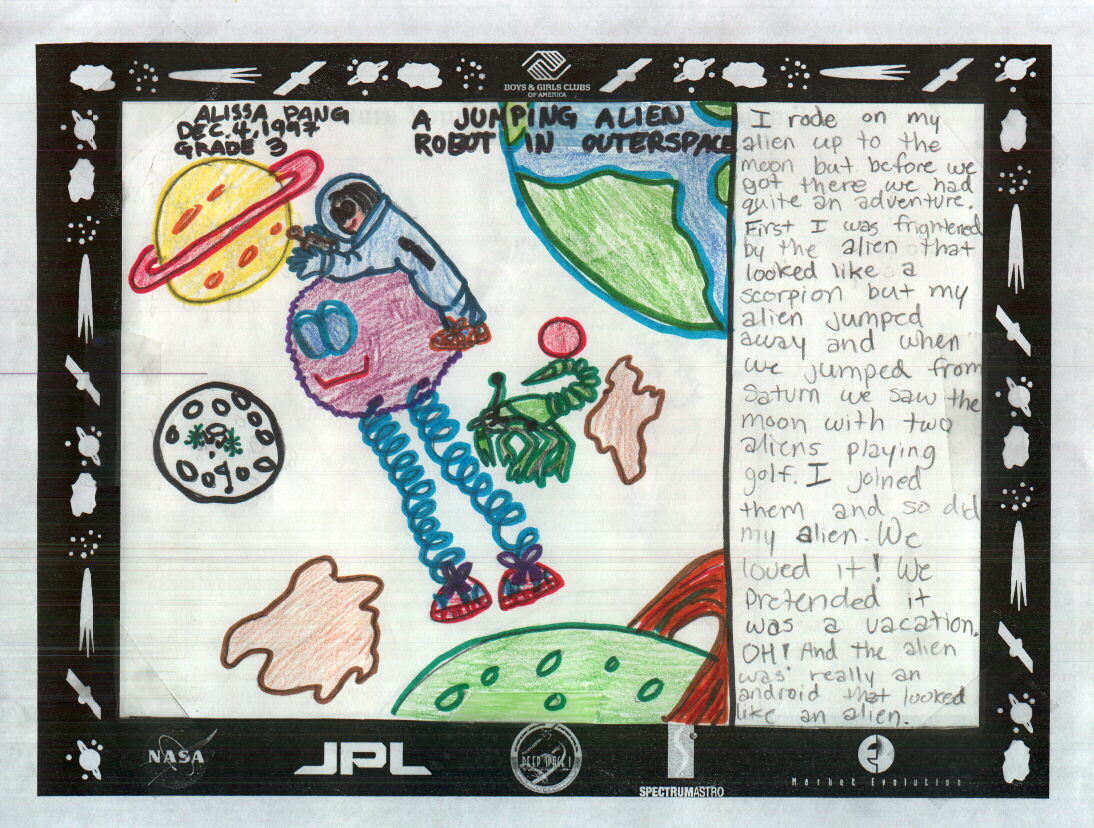 BOYS & GIRLS CLUBS
OF AMERICA
ALISSA PANG
DEC. 4, 1997
GRADE 3
A JUMPING ALIEN
ROBOT IN OUTERSPACE
I rode on my
alien up to the
moon but before we
got there we had
quite an adventure.
First I was frightened
by the alien that
looked like a
scorpion but my
alien jumped
away and when
we jumped from
Saturn we saw the
moon with two
aliens playing
golf. I joined
them and so did
my alien. We
loved it! We
Pretended it
was a vacation.
OH! And the alien
was really an
android that looked
like an alien.
NASA
JPL
DEEP SPACE 1
SPECTRUMASTRO
Market Evolution